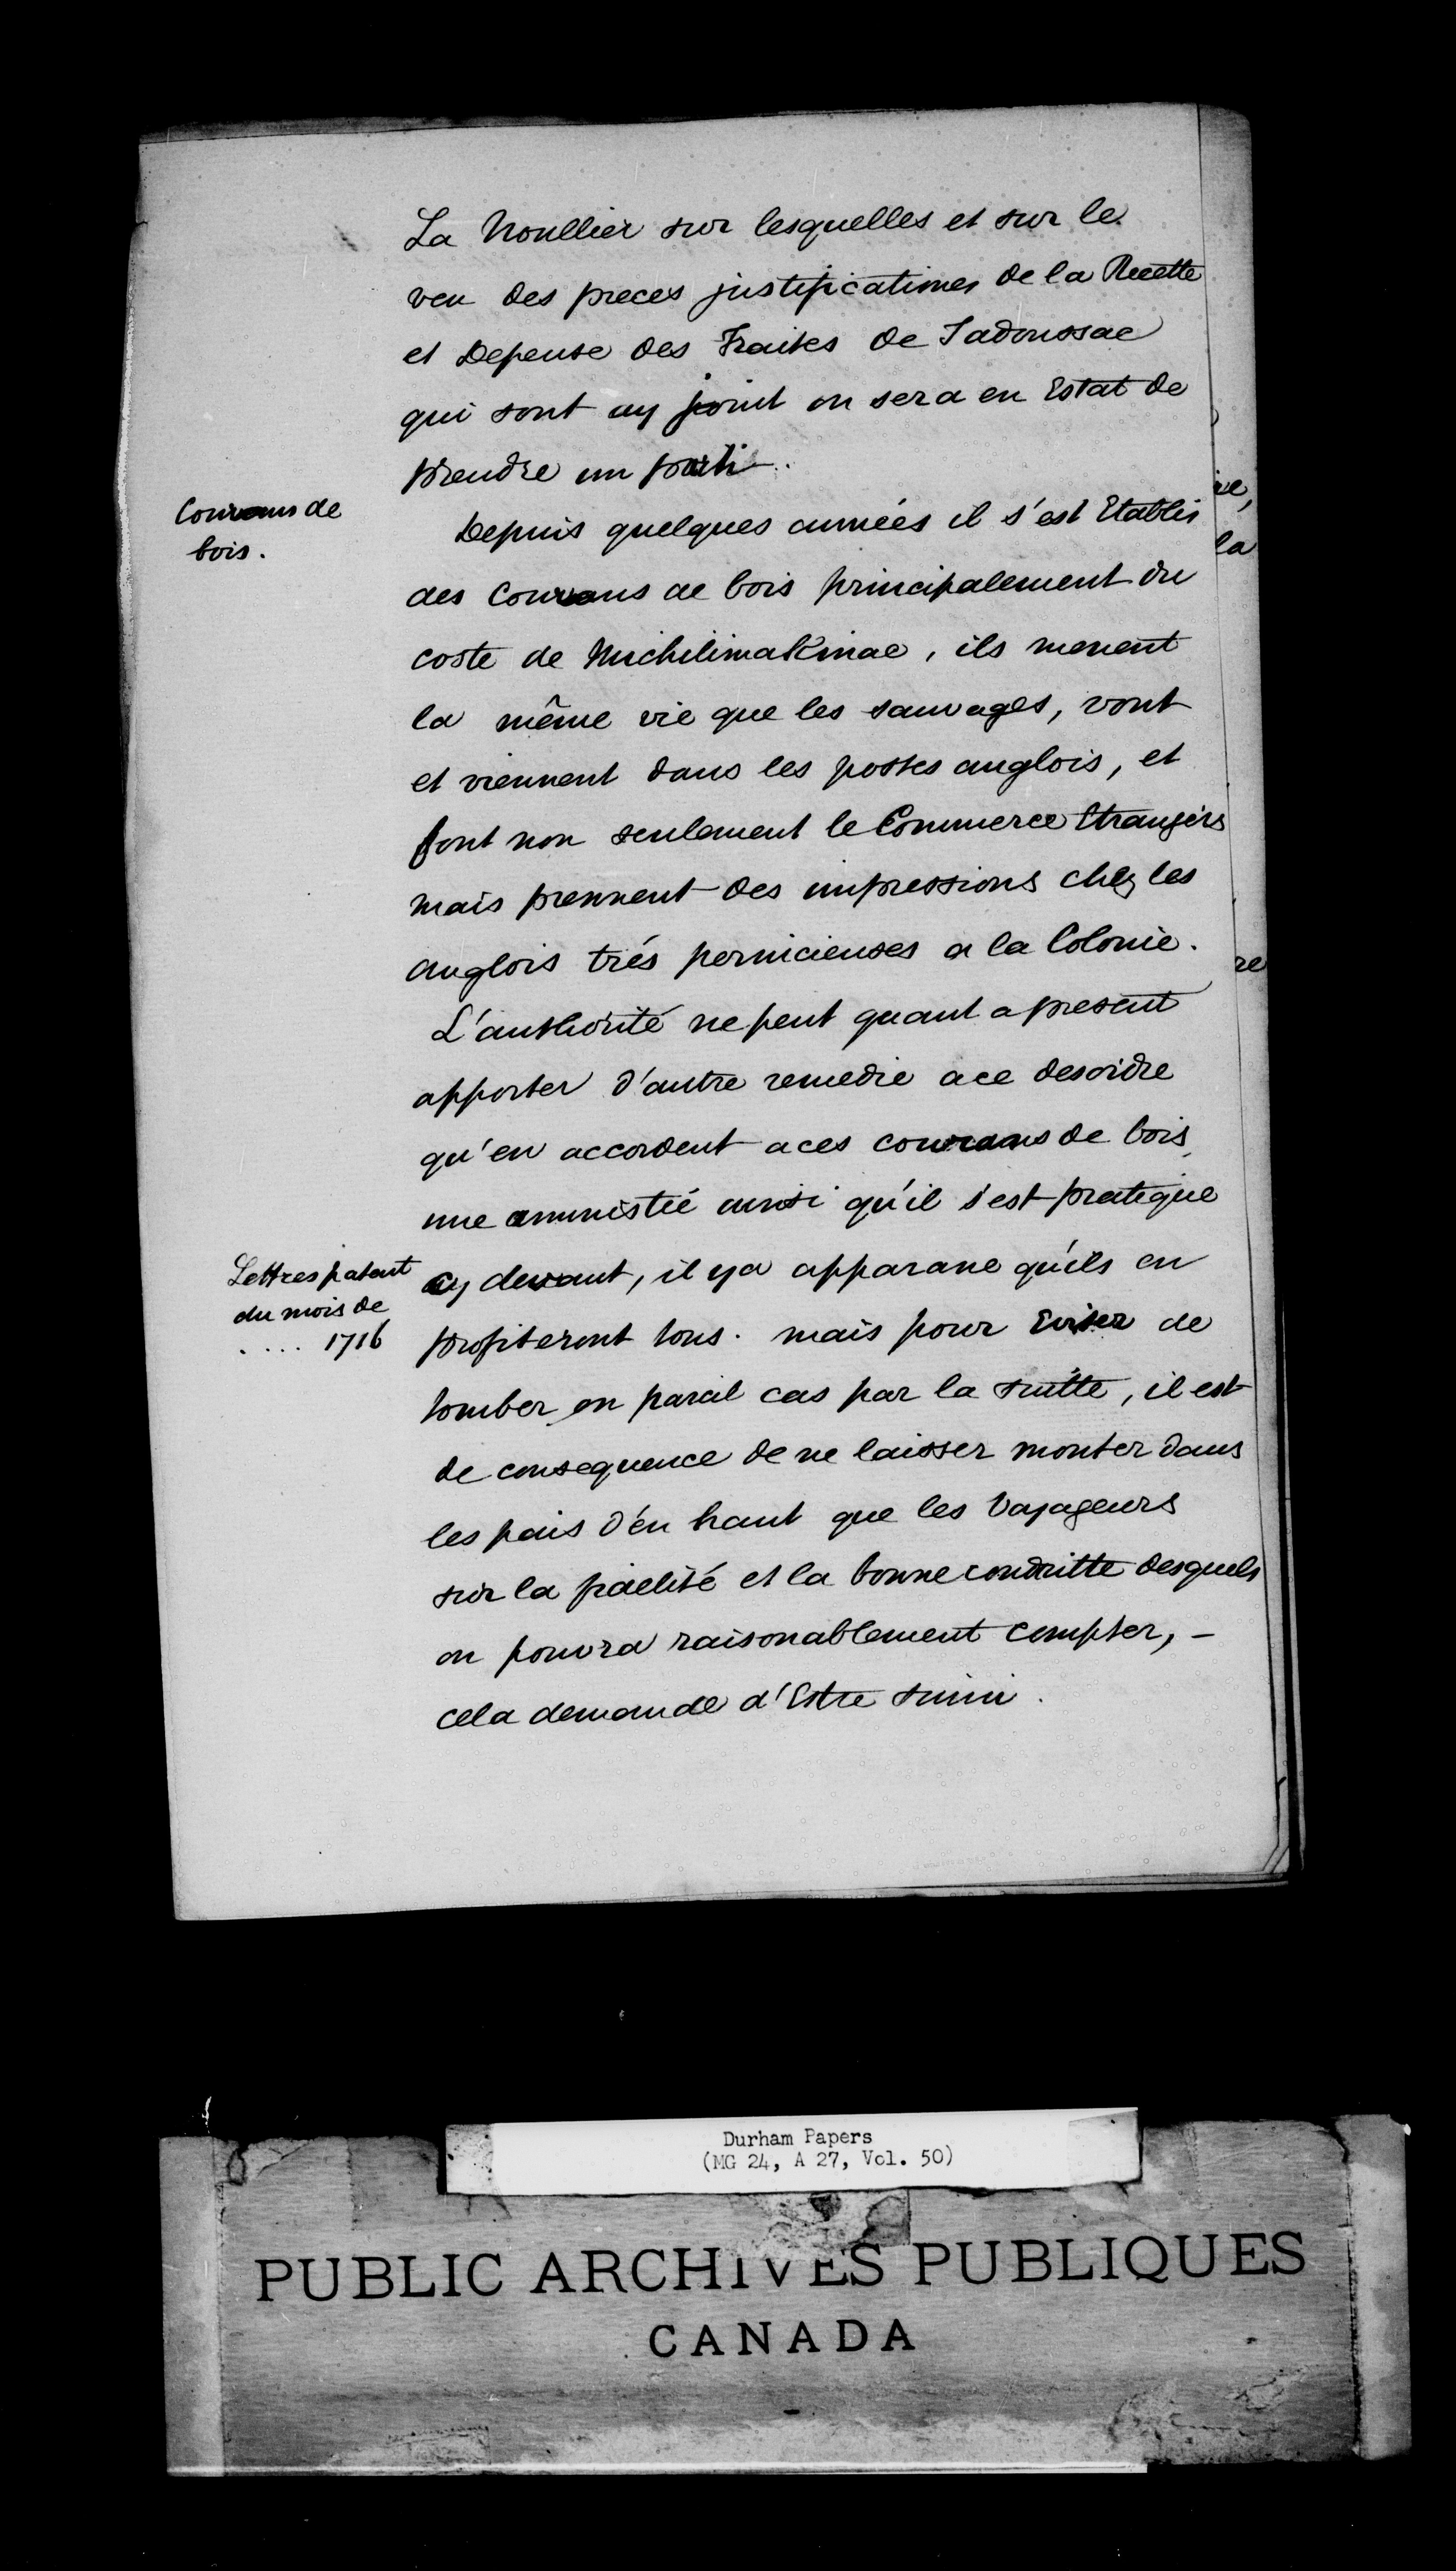 La Noullier sur lesquelles et sur le
veu des pieces justificatives de la Recette
et Depense des Traites de Tadoussac
qui sont cy joint on sera en Estat de
prendre un parti.
Courans de
bois.
Depuis quelques années il s'est Etablis
des Courans de bois principalement du
coste de Michilimakinac, ils menent
la même vie que les sauvages, vont
et viennent dans les postes anglois, et
font non seulement le Commerce Etrangers
mais prennent des impressions chez les
anglois trés pernicieuses a la Colonie.
L'authorité ne peut quant a present
apporter d'autre remedie a ce desordre
qu'en accordent a ces courans de bois,
une amnistié ainsi qu'il s'est pratique
Lettres patent
du mois de
.... 1716
cy devant, il y a apparane qu'ils en
profiteront tous. mais pour Eviter de
tomber en pareil cas par la suitte, il est
de consequence de ne laisser monter dans
les pais d'en haut que les Voyageurs
sur la fidelité et la bonne conduitte desquels
on pourra raisonablement compter, -
cela demande d'Estre suivi.
re,
la
re
Durham Papers
(MG 24, A 27, Vol. 50)
PUBLIC ARCHIVES PUBLIQUES
CANADA